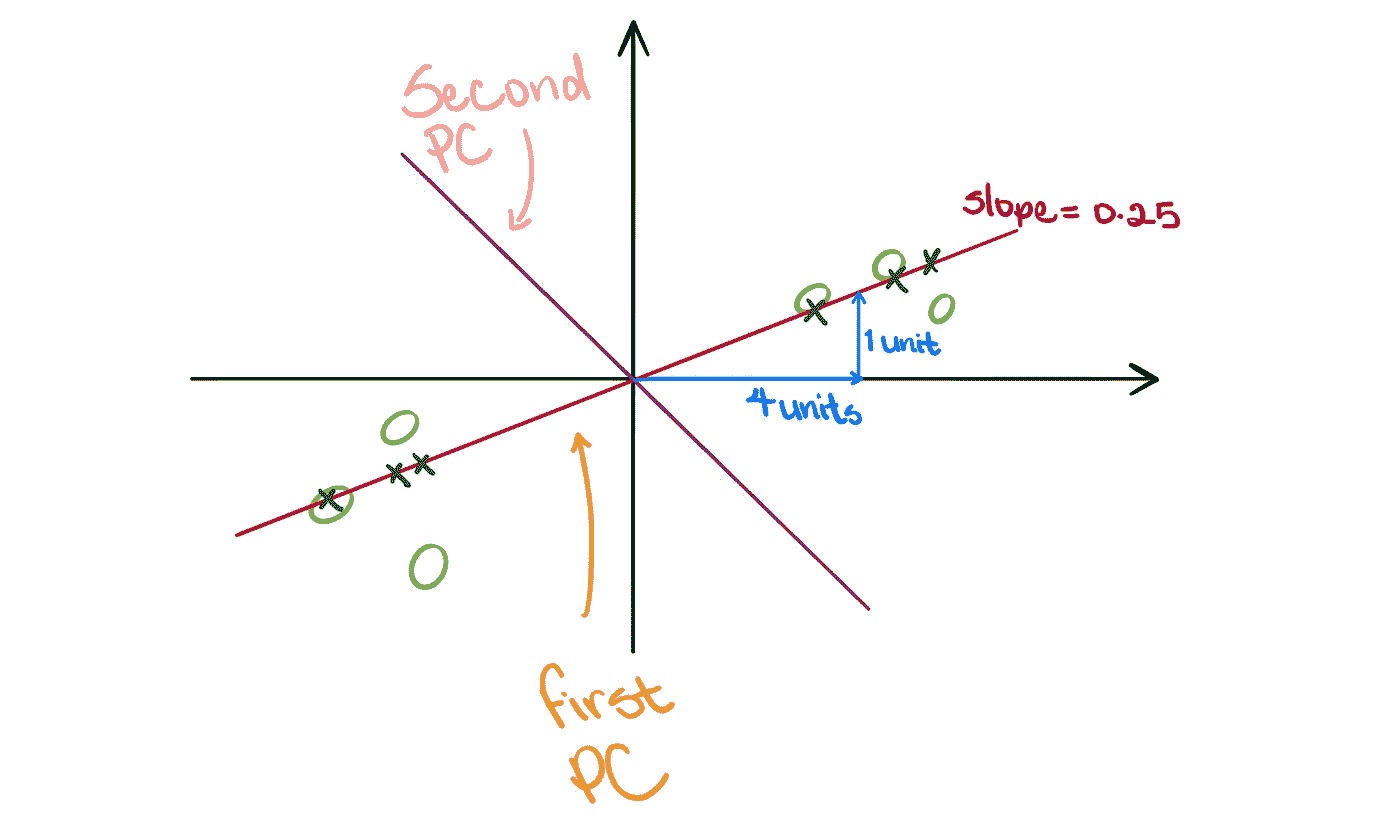 Second
PC
slope = 0.25
1 unit
4 units
first
PC